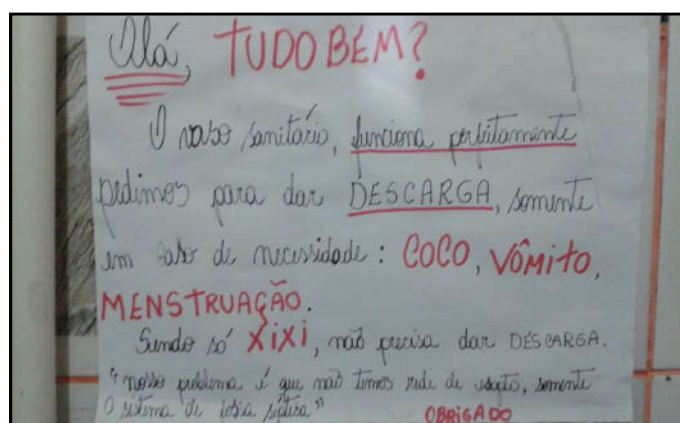 Olá, TUDO BEM?
O vaso sanitário, funciona perfeitamente
pedimos para dar DESCARGA, somente
em caso de necessidade: COCO, VÔMITO,
MENSTRUAÇÃO.
Sendo só XIXI, não precisa dar DESCARGA.
"nosso problema é que não temos rede de esgoto, somente
O sistema de fossa séptica"
OBRIGADO